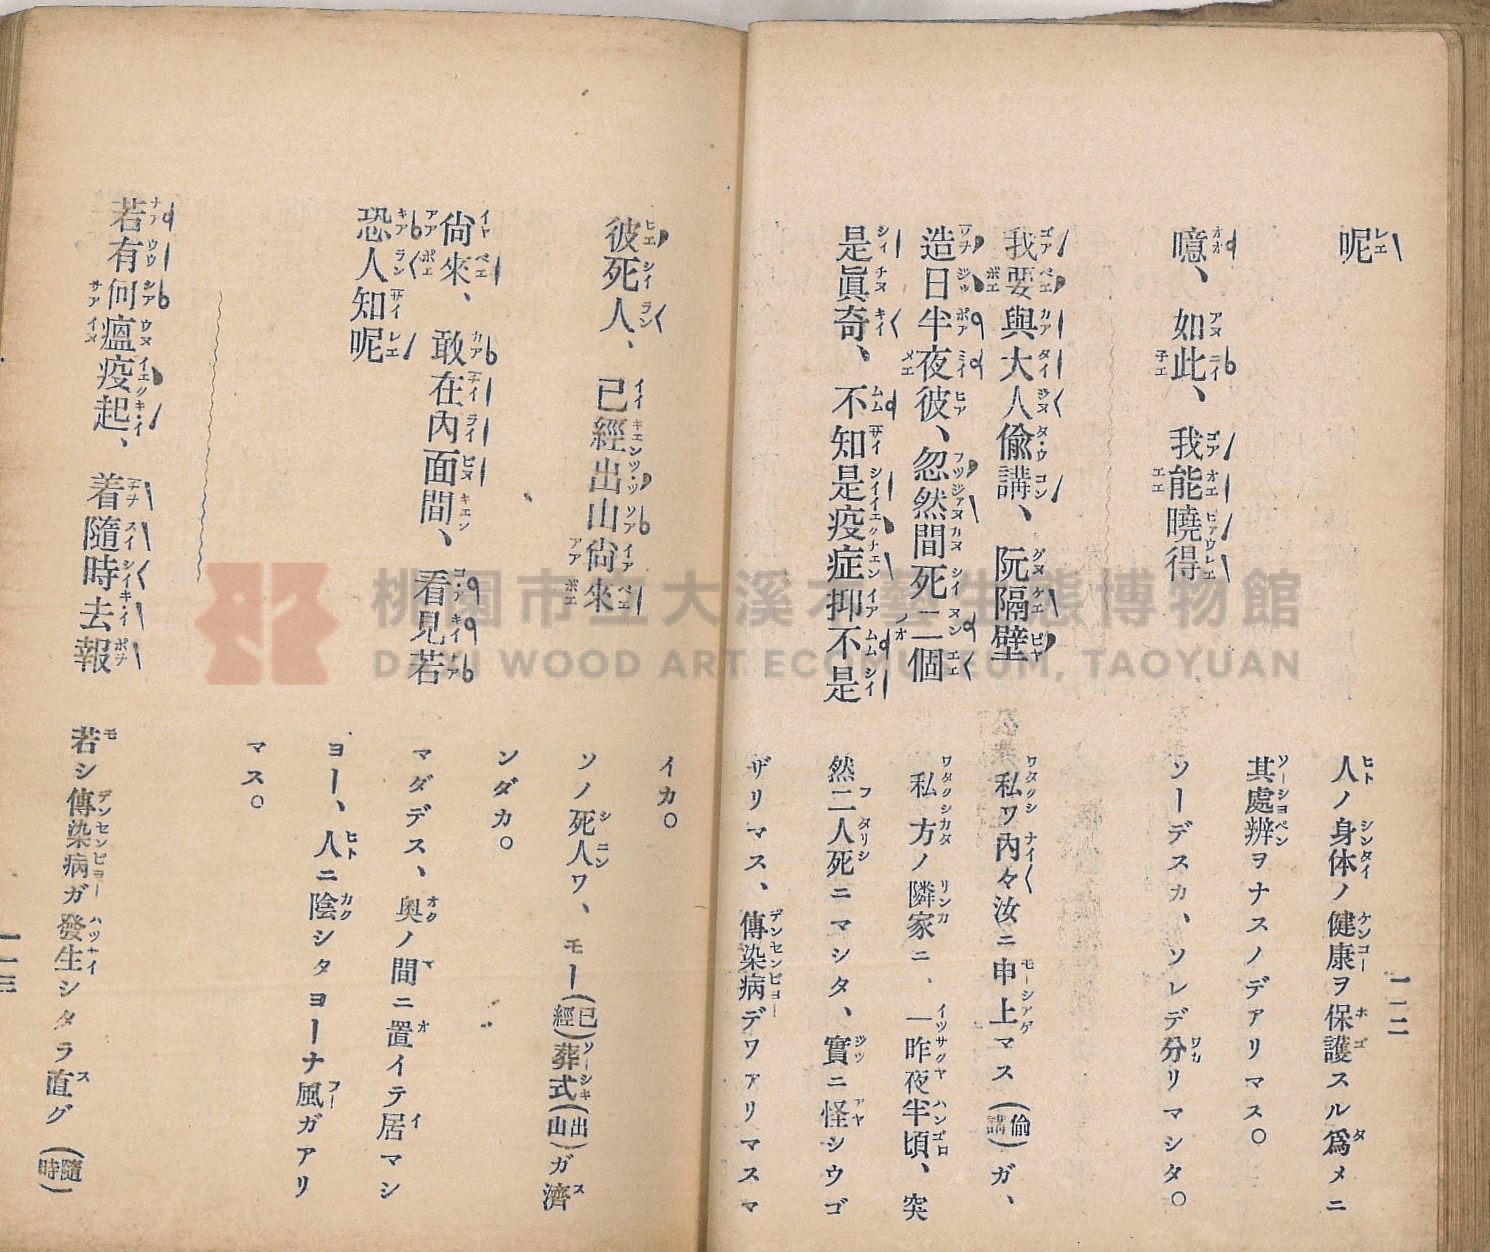 一一二
呢
人ノ身体ノ健康ヲ保護スル爲メニ
其處辨ヲナスノデアリマス。
噫、如此、我能曉得
ソーデスカ、ソレデ分リマシタ。
我要與大人偸講、阮隔壁
私ワ內々汝ニ申上マス(偸講)ガ、
造日半夜彼、忽然間死二個
私方ノ隣家ニ、一昨夜半頃、突
是眞奇、不知是疫症抑不是
然二人死ニマシタ、實ニ怪シウゴ
ザリマス、傳染病デワァリマスマ
イカ。
彼死人、已經出山尙來
ソノ死人ワ、モー(已經)葬式(出山)ガ濟
ンダカ。
尙來、敢在內面間、看見若
マダデス、奥ノ間ニ置イテ居マシ
恐人知呢
ヨー、人ニ陰シタヨーナ風ガアリ
マス。
若有何瘟疫起、着隨時去報
若シ傳染病ガ發生シタラ直グ(隨時)
一一三
桃園市立大溪木藝生態博物館
DAXI WOOD ART ECOMUSEUM, TAOYUAN